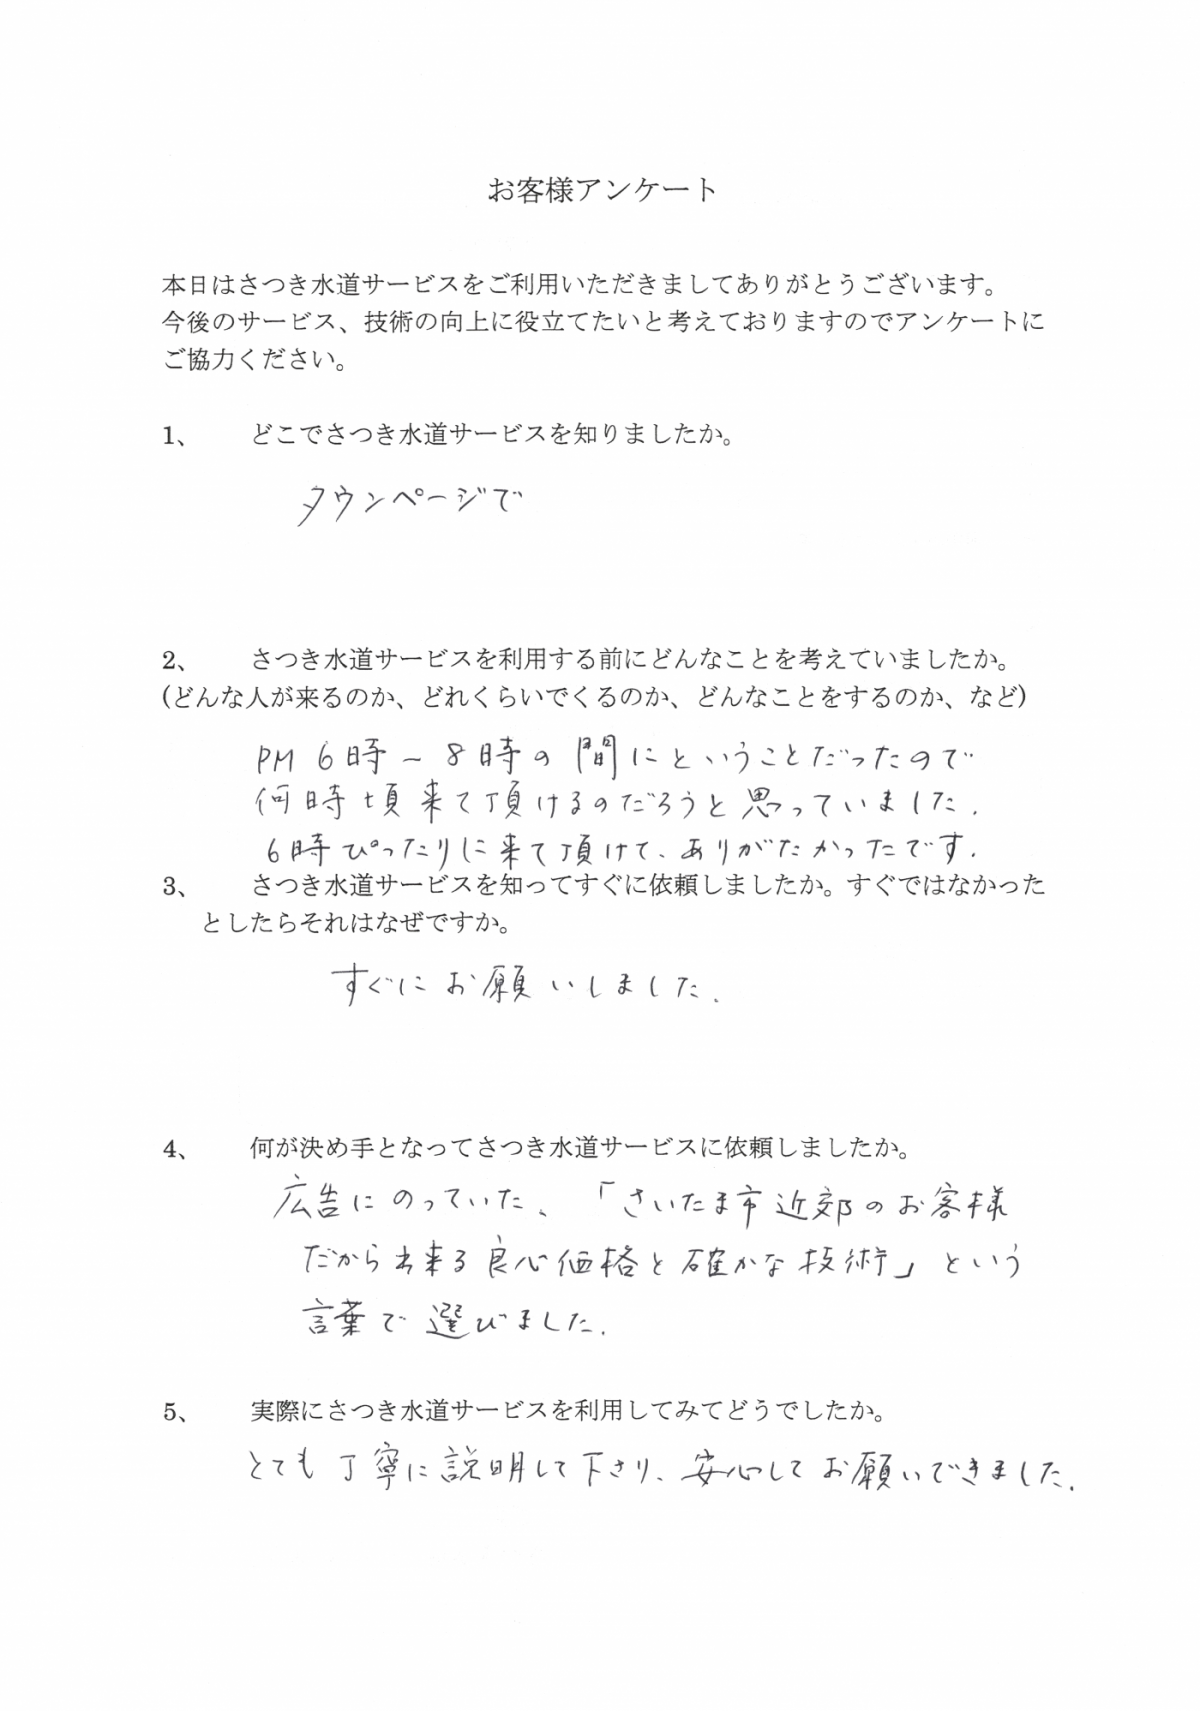 お客様アンケート
本日はさつき水道サービスをご利用いただきましてありがとうございます。
今後のサービス、技術の向上に役立てたいと考えておりますのでアンケートに
ご協力ください。
1、 どこでさつき水道サービスを知りましたか。
タウンページで
2、 さつき水道サービスを利用する前にどんなことを考えていましたか。
(どんな人が来るのか、どれくらいでくるのか、どんなことをするのか、など)
PM 6時~8時の間にということだったので
何時頃来て頂けるのだろうと思っていました.
6時ぴったりに来て頂けて、ありがたかったです.
3、 さつき水道サービスを知ってすぐに依頼しましたか。すぐではなかった
としたらそれはなぜですか。
すぐにお願いしました.
4、 何が決め手となってさつき水道サービスに依頼しましたか。
広告にのっていた、「さいたま市近郊のお客様
だから出来る良心価格と確かな技術」という
言葉で選びました.
5、 実際にさつき水道サービスを利用してみてどうでしたか。
とても丁寧に説明して下さり、安心してお願いできました.